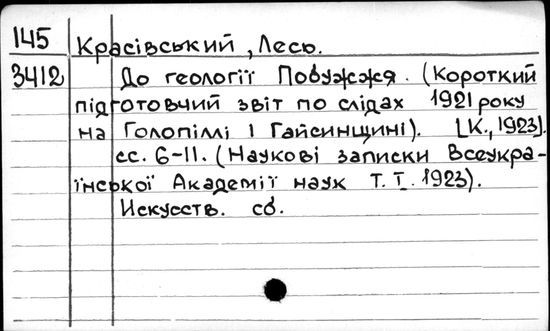 145
Красівський, Лесь.
3412
До геології Побужжя. (Короткий
підготовчий звіт по слідах 1921 року
на Голопіллі і Гайсинщині). [К., 1923].
сс. 6-11. (Наукові записки Всеукра-
їнської Академії наук Т. I. 1923).
Искусств. сб.